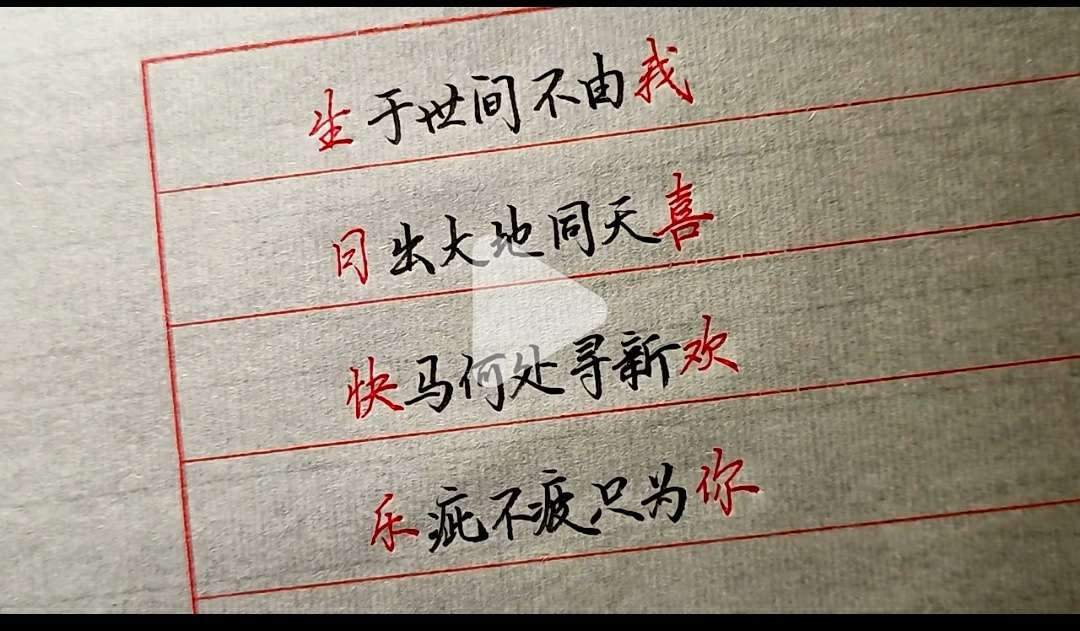 生于世间不由我
日出大地同天喜
快马何处寻新欢
乐疵不疲只为你